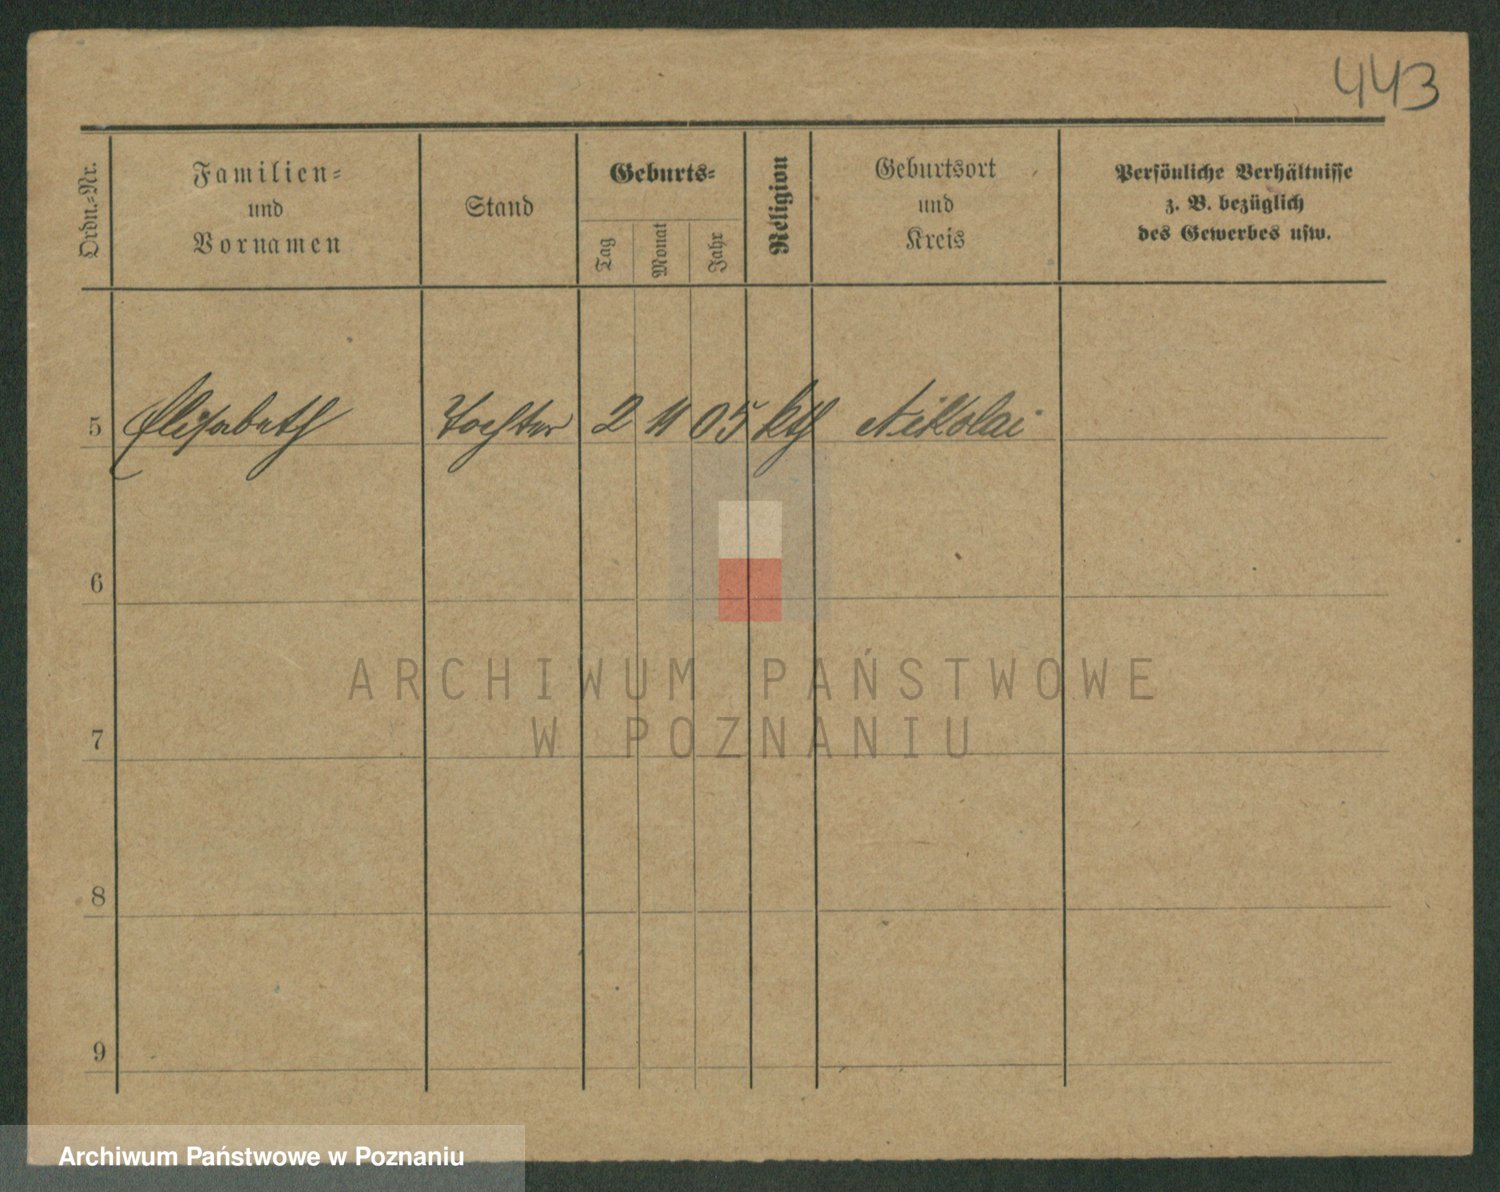 443
Ordn.-Nr.
Familien-
und
Vornamen
Stand
Geburts-
Tag
Monat
Jahr
Religion
Geburtsort
und
Kreis
Persönliche Verhältnisse
z. B. bezüglich
des Gewerbes usw.
5 Elisabeth Tochter 2 11 05 kth Nikolai
6
ARCHIWUM PAŃSTWOWE
W POZNANIU
7
8
9
Archiwum Państwowe w Poznaniu